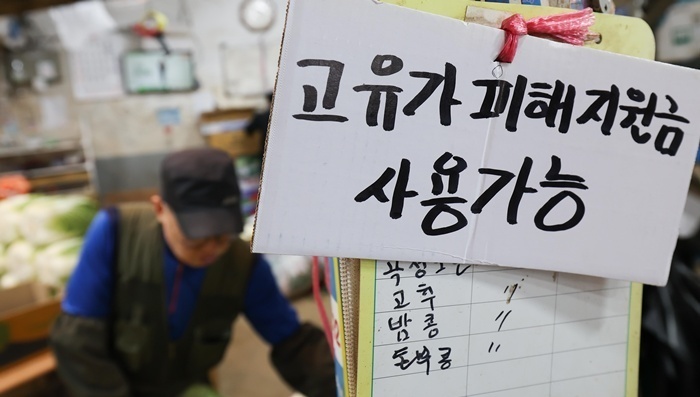 고유가 피해지원금
사용가능
고추
밤콩 〃